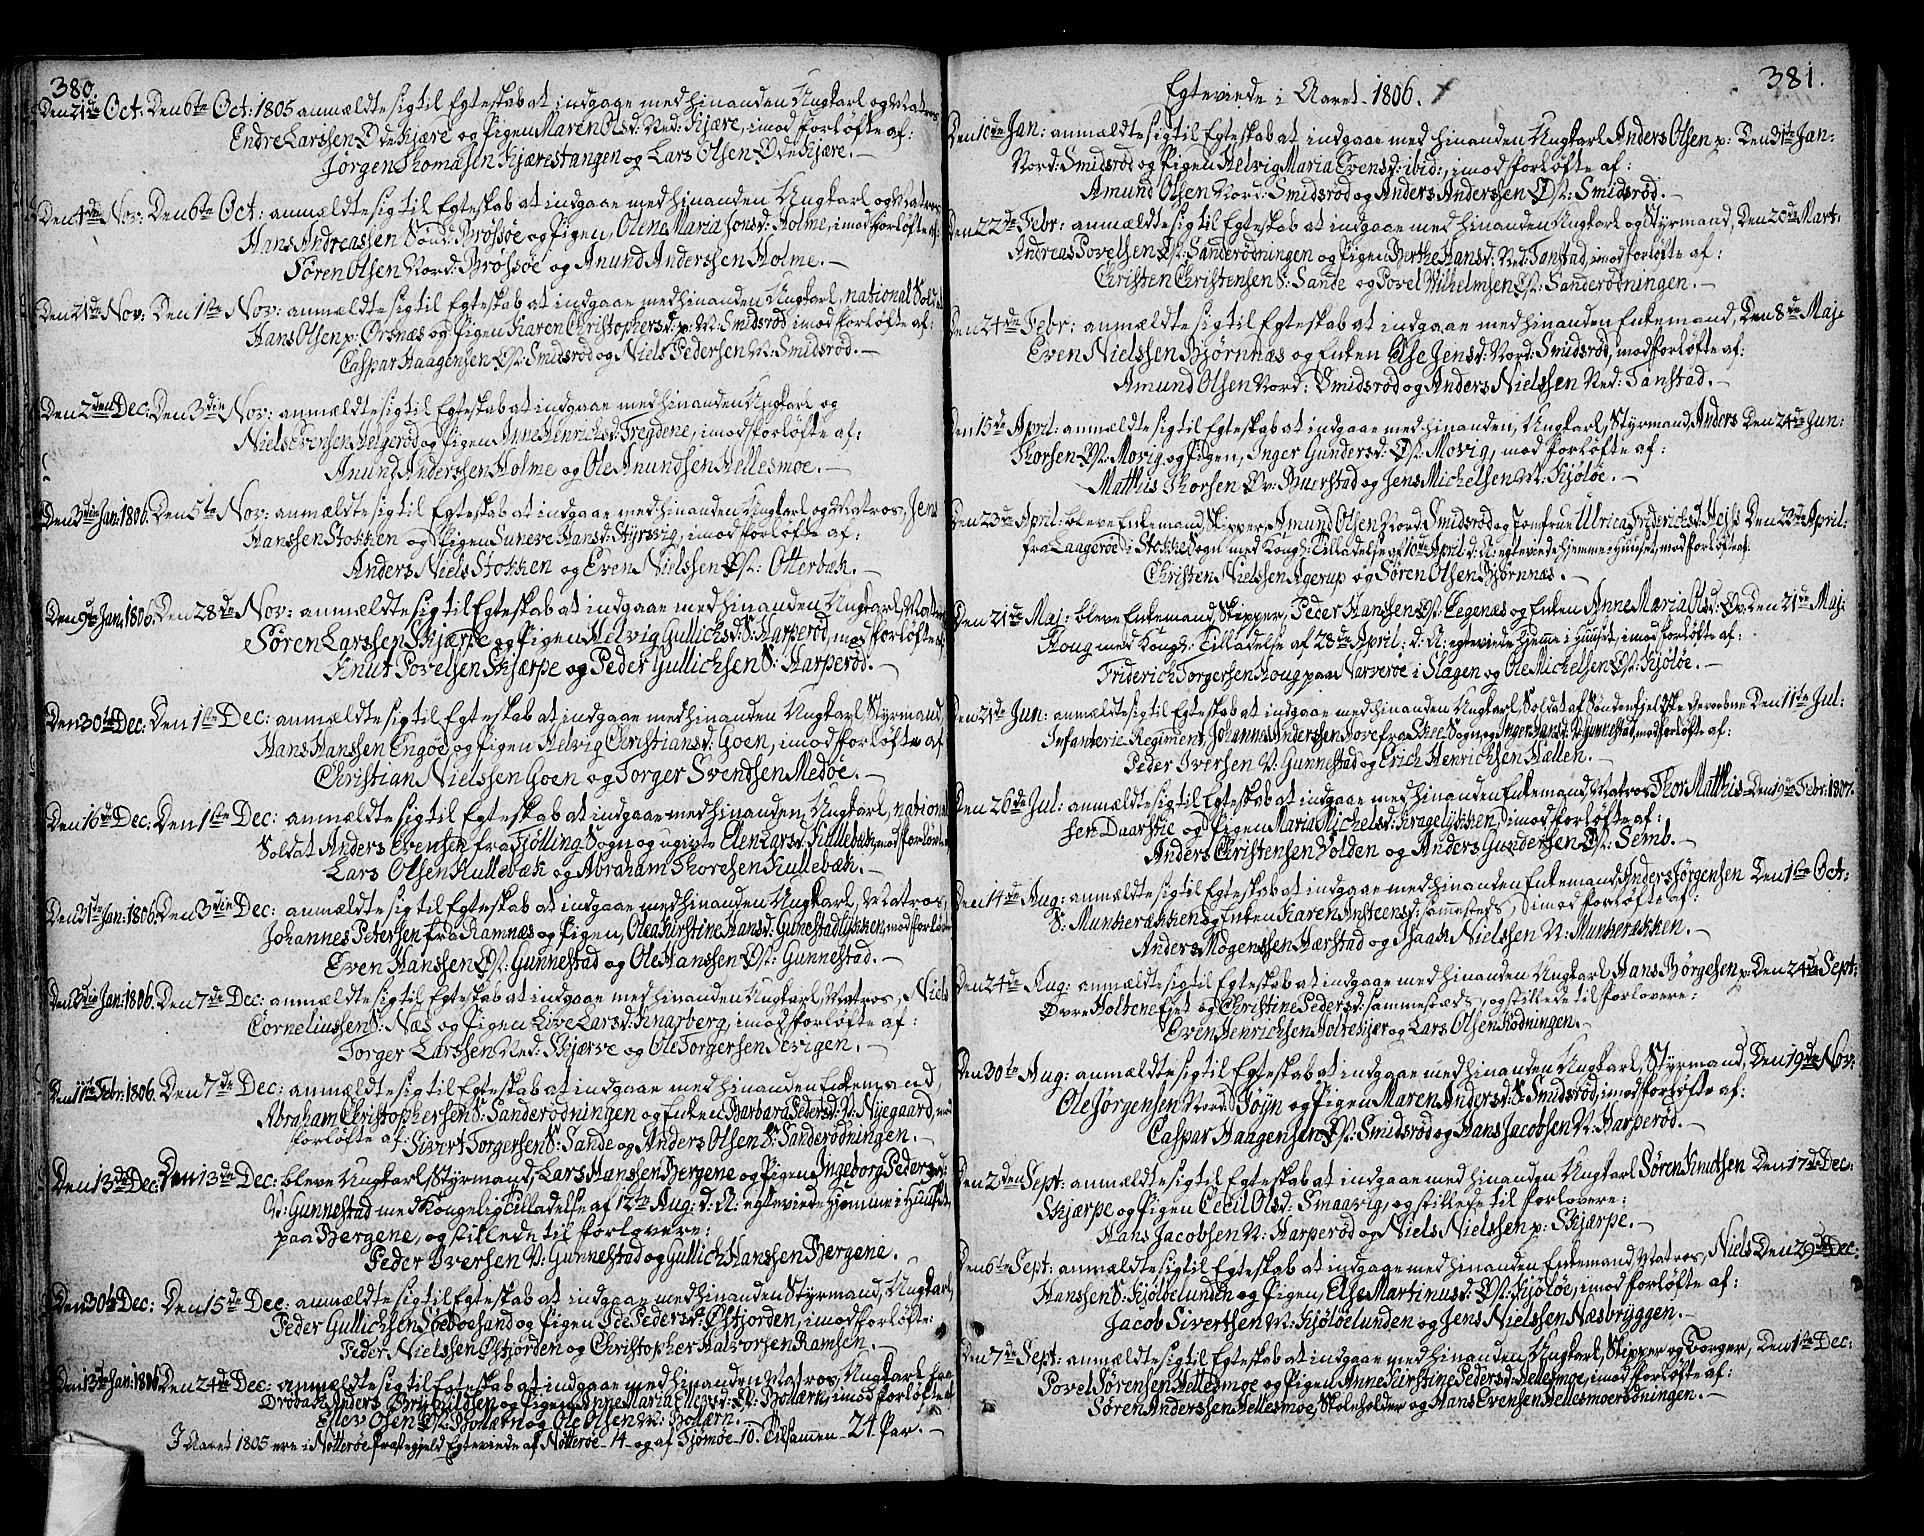 380.
Den 21de Oct: Den 6te Oct: 1805 anmældte sig til Egteskab at indgaae med hinanden Ungkarl og Matros
Endre Larssen Ødekjære og Pigen Maren Olsd: Ned: Kjære, imod Forløfte af:
Jørgen Thomasen Kjærestangen og Lars Olsen Ødekjære. —
Den 4de Nov: Den 6te Oct: anmældte sig til Egteskab at indgaae med hinanden Ungkarl og Matros
Hans Andreassen Sønd: Brøssøe og Pigen, Olene Maria Jonsd: Holme, imod Forløfte af:
Søren Olsen Nord: Brøssøe og Anund Anderssen Holme. —
Den 21de Nov: Den 1ste Nov: anmældte sig til Egteskab at indgaae med hinanden Ungkarl, national Soldat
Hans Olsen p: Orsnæs og Pigen Karen Christophersd: p: V: Smidsrød imod Forløfte af:
Caspar Haagensen Øst: Smidsrød og Niels Pedersen V: Smidsrød. —
Den 2den Dec: Den 3die Nov: anmældte sig til Egteskab at indgaae med hinanden Ungkarl og
Niels Evensen Helgerød og Pigen Anne Henrichsd: Tregdene, imod Forløfte af:
Anund Anderssen Holme og Ole Anundsen Hellesmoe. —
Den 3die Jan: 1806. Den 5te Nov: anmældte sig til Egteskab at indgaae med hinanden Ungkarl og Matros, Jens
Hanssen Stokken og Pigen Suneve Hansd: Styrsvig, imod Forløfte af:
Anders Niels Stokken og Even Nielssen Øst: Otterbæk. —
Den 9de Jan: 1806. Den 28de Nov: anmældte sig til Egteskab at indgaae med hinanden Ungkarl, Matros
Søren Larssen Skjærpe og Pigen Helvig Gullichsd: S: Harperød, imod Forløfte af
Knut Povelsen Skjærpe og Peder Gullichsen S: Harperød. —
Den 30te Dec: Den 1ste Dec: anmældte sig til Egteskab at indgaae med hinanden Ungkarl, Styrmand,
Hans Hanssen Engøe, og Pigen Helvig Christiansd: Goen, imod Forløfte af
Christian Nielssen Goen og Torger Svendsen Medøe. —
Den 16de Dec: Den 1ste Dec: anmældte sig til Egteskab at indgaae med hinanden, Ungkarl, national
Soldat Anders Evensen fra Fjølling Sogn og ugivte Elen Larsd: Kullebæk, imod Forløfte
Lars Olsen Kullebæk og Abraham Thoresen Kullebæk. —
Den 21te Jan: 1806. Den 3die Dec: anmældte sig til Egteskab at indgaae med hinanden Ungkarl, Matros,
Johannes Petersen fra Ramnæs og Pigen, Olea Kirstine Hansd: Gunestadløkken, imod Forløfte
Even Hanssen Øst: Gunnestad og Ole Hanssen Øst: Gunnestad. —
Den 3die Jan: 1806. Den 7de Dec: anmældte sig til Egteskab at indgaae med hinanden Ungkarl, Matros, Niels
Corneliussen S: Næs og Pigen Live Larsd: Knarberg, imod Forløfte af:
Torger Larssen Ned: Skjærve og Ole Torgersen Jevigen. —
Den 11te Febr: 1806. Den 7de Dec: anmældte sig til Egteskab at indgaae med hinanden Enkemand,
Abraham Christophersen S: Sanderødningen og Enken Barbara Pedersd: V: Nyegaard, imod
Forløfte af Sivert Torgersen S: Sande og Anders Olsen S: Sanderødningen. —
Den 13de Dec: Den 13de Dec: bleve Ungkarl, Styrmand, Lars Hanssen Bergene og Pigen Ingeborg Pedersd:
V: Gunnestad med Kongelig Tilladelse af 12te Aug: d: A: egteviede hjemme i Huuset,
paa Bergene, og stillede til Forlovere:
Peder Iversen V: Gunnestad og Gullich Hanssen Bergene. —
Den 30te Dec: Den 15de Dec: anmældte sig til Egteskab at indgaae med hinanden Styrmand, Ungkarl,
Peder Gullichsen Sbeboesand og Pigen Ide Pedersd: Østjorden, imod Forløfte:
Peder Nielssen Østjorden og Christopher Halvorsen Ramsen. —
Den 13de Jan: 1806 Den 24de Dec: anmældte sig til Egteskab at indgaae med hinanden Matros, Ungkarl fra
Drøbach Anders Brynildsen og Pigen Anne Maria Ellevsd: Ø: Bollærn, imod Forløfte af
Elev Olsen Øst: Bollærn og Ole Olsen V: Bollærn. —
I Aaret 1805 ere i Nøtterøe Præstegjeld Egteviede af Nøtterøe 14 og af Tjømøe 10. Tilsamen 24 Par. —
381.
Egteviede i Aaret 1806.
Den 10de Jan: anmældte sig til Egteskab at indgaae med hinanden Ungkarl Anders Olsen p: Den 31te Jan:
Nord: Smidsrød og Pigen Helvig Maria Evensd: ibid:, imod Forløfte af:
Amund Olsen Nord: Smidsrød og Anders Anderssen Øst: Smidsrød. —
Den 22de Febr: anmældte sig til Egteskab at indgaae med hinanden Ungkarl og Styrmand, Den 20de Mart:
Andreas Povelsen Øst: Sanderødningen og Pigen Berthe Hansd: Ned: Tanstad, imod Forløfte af:
Christen Christensen S: Sande og Povel Vilhelmsen Øst: Sanderødningen. —
Den 24de Febr: anmældte sig til Egteskab at indgaae med hinanden Enkemand, Den 8de Maj:
Even Nielssen Bjørnnæs og Enken Else Jensd: Nord: Smidsrød, imod Forløfte af:
Amund Olsen Nord: Smidsrød og Anders Nielssen Ned: Tanstad. —
Den 15de April: anmældte sig til Egteskab at indgaae med hinanden, Ungkarl, Styrmand, Anders Den 24de Jun:
Thorsen Øst: Movig og Pigen, Inger Gundersd: Øst: Movig, imod Forløfte af:
Matthis Thorsen Øv: Buerstad og Jens Michelsen V: Kjøløe. —
Den 23de April: bleve Enkemand, Skipper, Amund Olsen Nord: Smidsrød og Jomfrue Ulrica Friderichsd: Heiss Den 23de April:
fra Laagerøe i Stokke Sogn med Kongl: Tilladelse af 10de April: d: A: egteviede hjemme i Huuset, imod Forløfte af:
Christen Nielssen Agerup og Søren Olsen Bjørnnæs. —
Den 21de Maj: bleve Enkemand, Skipper, Peder Hanssen Øst: Tegenæs og Enken Anne Maria Olsd: Øv: Den 21de Maj:
Houg med Kongl: Tilladelse af 23de April: d: A: egteviede hjemme i Huuset, imod Forløfte af:
Friderich Torgersen Houg paa Narverøe i Slagen og Ole Michelsen Øst: Kjøløe. —
Den 21de Jun: anmældte sig til Egteskab at indgaae med hinanden Ungkarl Soldat af Søndenfjeldske hervorbne Den 11te Jul:
Infanterie Regiment, Johannes Anderssen Hove fra Skee Sogn og Inger Hansd: V: Gunnestad, imod Forløfte af:
Peder Iversen V: Gunnestad og Erich Henrichsen Hælleh. —
Den 26de Jul: anmældte sig til Egteskab at indgaae med hinanden Enkemand, Matros Thor Matthis- Den 19de Febr: 1807.
sen Daarstie og Pigen Maria Michelsd: Kragelykken, imod Forløfte af:
Anders Christensen Volden og Anders Gundersen Øst: Semb. —
Den 14de Aug: anmældte sig til Egteskab at indgaae med hinanden Enkemand Anders Jørgensen Den 1ste Oct:
S: Munkerækken og Enken Karen Ansteensd: sammesteds, imod Forløfte af:
Anders Mogenssen Hærstad og Isaak Nielssen V: Munkerækken. —
Den 24de Aug: anmældte sig til Egteskab at indgaae med hinanden Ungkarl Hans Børgesen p: Den 24de Sept:
Øvre Holtene Eget og Christine Pedersd: sammesteds, og stillede til Forlovere:
Even Henrichsen Holtekjær og Lars Olsen Rødningen. —
Den 30te Aug: anmældte sig til Egteskab at indgaae med hinanden Ungkarl, Styrmand, Den 19de Nov:
Ole Jørgensen Nord: Føyn og Pigen Maren Andersd: S: Smidsrød, imod Forløfte af:
Caspar Haagensen Øst: Smidsrød og Hans Jacobsen V: Harperød. —
Den 2den Sept: anmældte sig til Egteskab at indgaae med hinanden Ungkarl Søren Knutsen Den 17de Dec:
Skjærpe og Pigen Cecil Olsd: Smaavig, og stillede til Forlovere:
Hans Jacobsen V: Harperød og Niels Nielssen p: Skjærpe. —
Den 6te Sept: anmældte sig til Egteskab at indgaae med hinanden Enkemand, Matros, Niels Den 29de Dec:
Hanssen S: Kjøløelunden og Pigen, Else Martinusd: Øst: Kjøløe, imod Forløfte af:
Jacob Sivertsen V: Kjøløelunden og Jens Nielssen Næsbryggen. —
Den 7de Sept: anmældte sig til Egteskab at indgaae med hinanden Ungkarl, Skipper og Borger, Den 1ste Dec:
Povel Sørensen Hellesmoe og Pigen Anne Kirstine Pedersd: Hellesmoe, imod Forløfte af:
Søren Anderssen Hellesmoe, Skoleholder og Hans Evensen Hellesmoerødningen. —